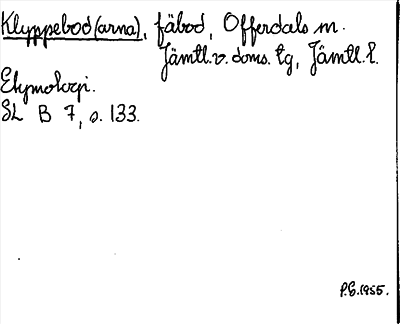 Klyppebod(arna), fäbod, Offerdals m.
Jämtl.v.doms. tg, Jämtl.l.
Etymologi.
SL B 7, s. 133.
P.E.1955.